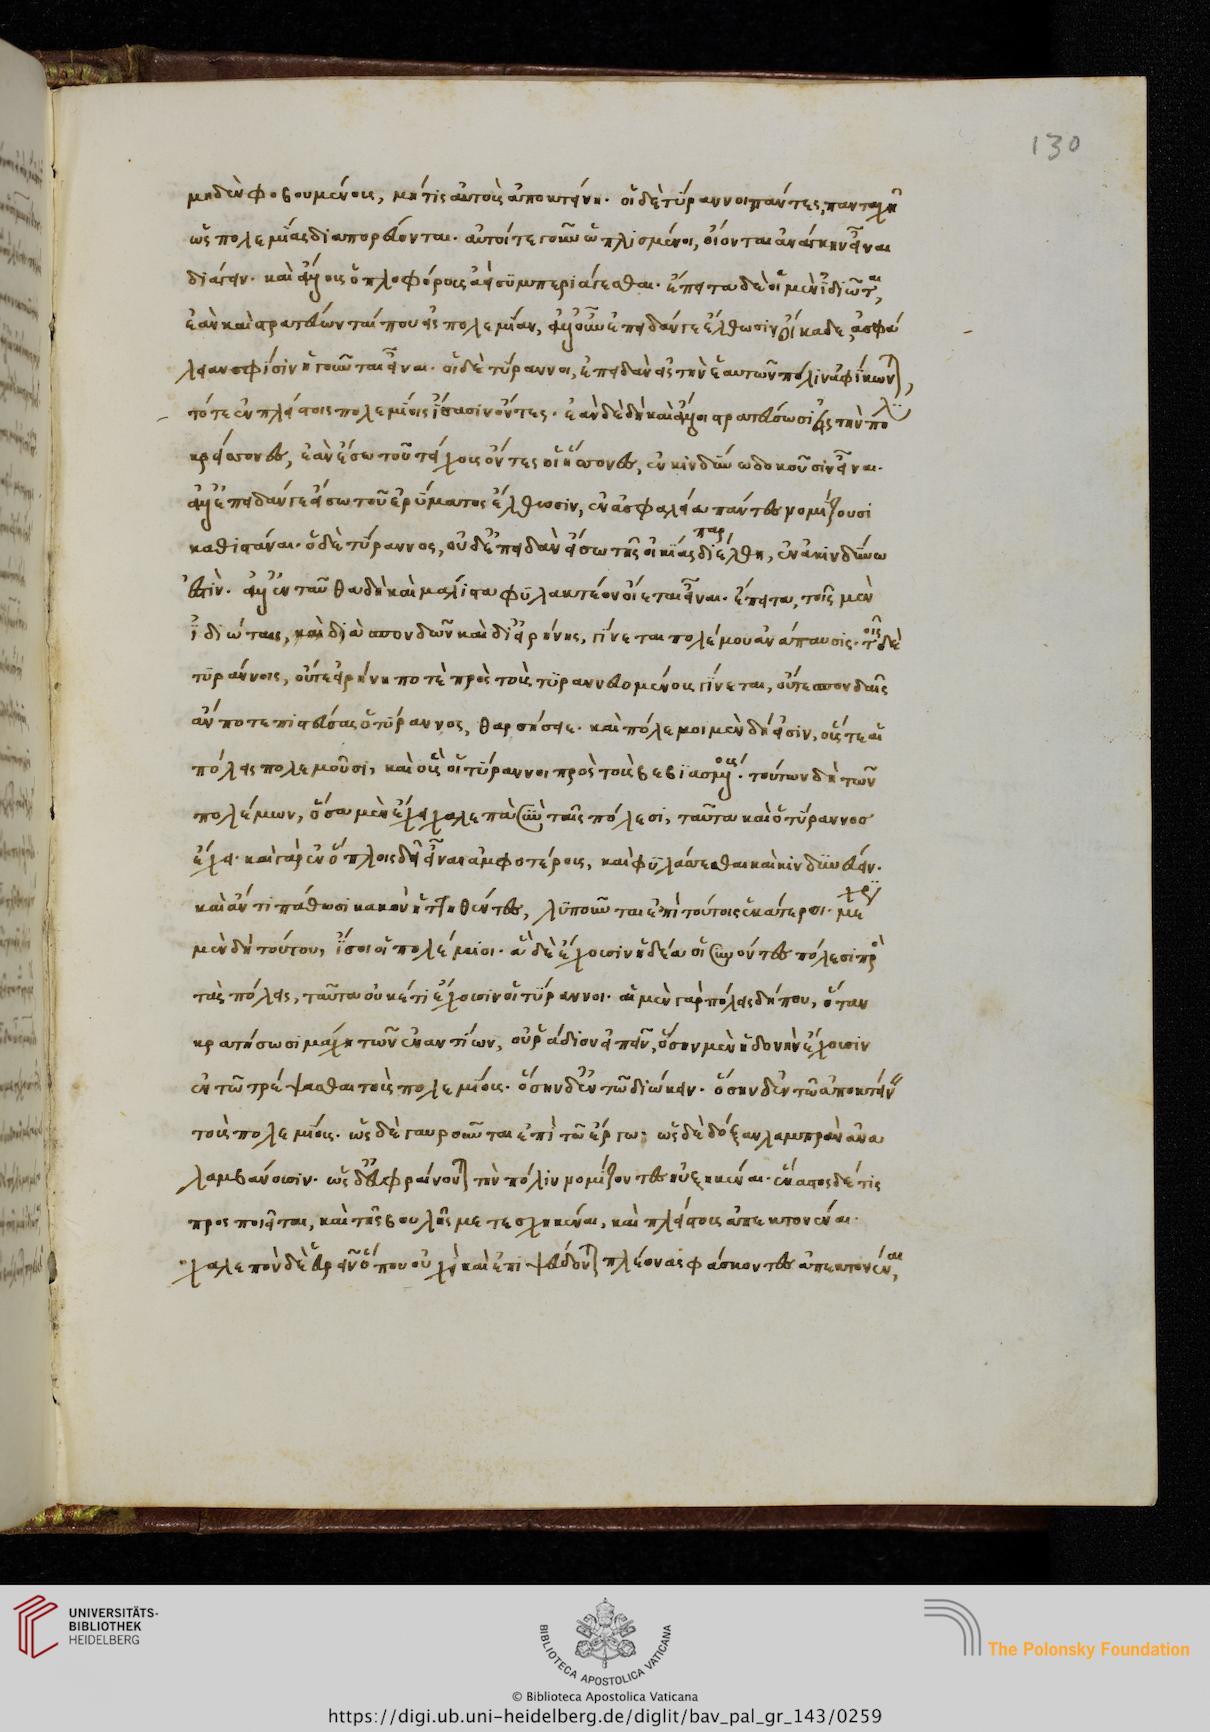 130
μηδὲν φοβουμένοις, μή τις αὐτοὺς ἀποκτείνη. οἱ δὲ τύραννοι πάντες, πανταχῆ
ὡς πολεμίας διαπορεύονται. αὐτοί τε γοῦν ὡπλισμένοι, οἴονται ἀνάγκην εἶναι
διάγειν. καὶ ἄλλους ὁπλοφόρους ἀεὶ συμπεριάγεσθαι. ἔπειτα δὲ οἱ μὲν ἰδιῶται,
ἐὰν καὶ στρατεύωνταί που εἰς πολεμίαν, ἀλλ' οὖν ἐπειδάν γε ἔλθωσιν οἴκαδε, ἀσφά
λειαν σφίσιν ἡγοῦνται εἶναι. οἱ δὲ τύραννοι, ἐπειδὰν εἰς τὴν ἑαυτῶν πόλιν ἀφίκωνται,
τότε ἐν πλείστοις πολεμίοις ἴσασιν ὄντες. ἐὰν δὲ δὴ καὶ ἄλλοι στρατεύσωσιν εἰς τὴν πόλιν
κρείττονες, ἐὰν ἔξω τοῦ τείχους ὄντες οἱ ἥττονες, ἐν κινδύνω δοκοῦσιν εἶναι.
ἀλλ' ἐπειδάν γε εἴσω τοῦ ἐρύματος ἔλθωσιν, ἐν ἀσφαλεία πάντες νομίζουσι
καθιστάναι. ὁ δὲ τύραννος, οὐδ' ἐπειδὰν εἴσω τῆς οἰκίας παρέλθη, ἐν ἀκινδύνω
ἐστίν. ἀλλ' ἐνταῦθα δὴ καὶ μάλιστα φυλακτέον οἴεται εἶναι. ἔπειτα, τοῖς μὲν
ἰδιώταις, καὶ διὰ σπονδῶν καὶ δι' εἰρήνης, γίνεται πολέμου ἀνάπαυσις. τοῖς δὲ
τυράννοις, οὔτε εἰρήνη ποτὲ πρὸς τοὺς τυραννευομένους γίνεται, οὔτε σπονδαῖς
ἄν ποτε πιστεύσας ὁ τύραννος, θαρσήσειε. καὶ πόλεμοι μὲν δή εἰσιν, οὕς τε αἱ
πόλεις πολεμοῦσι, καὶ οὓς οἱ τύραννοι πρὸς τοὺς βεβιασμένους. τούτων δὴ τῶν
πολέμων, ὅσα μὲν ἔχει χαλεπὰ ὁ σὺν ταῖς πόλεσι, ταῦτα καὶ ὁ τύραννος
ἔχει. καὶ γὰρ ἐν ὅπλοις δεῖ εἶναι ἀμφοτέρους, καὶ φυλάττεσθαι καὶ κινδυνεύειν.
καὶ ἄν τι πάθωσι κακὸν ἡττηθέντες, λυποῦνται ἐπὶ τούτοις ἑκάτεροι. μέχρι
μὲν δὴ τούτου, ἴσοι οἱ πόλεμοι. ἃ δὲ ἔχουσιν ἡδέα οἱ συνόντες πόλεσι πρὸς
τὰς πόλεις, ταῦτα οὐκέτι ἔχουσιν οἱ τύραννοι. αἱ μὲν γὰρ πόλεις δήπου, ὅταν
κρατήσωσι μάχη τῶν ἐναντίων, οὐ ῥάδιον εἰπεῖν, ὅσην μὲν ἡδονὴν ἔχουσιν
ἐν τῶ τρέψασθαι τοὺς πολεμίους. ὅσην δ' ἐν τῶ διώκειν. ὅσην δ' ἐν τῶ ἀποκτείνειν
τοὺς πολεμίους. ὡς δὲ γαυροῦνται ἐπὶ τῶ ἔργω· ὡς δὲ δόξαν λαμπρὰν ἀνα
λαμβάνουσιν. ὡς δ' εὐφραίνονται τὴν πόλιν νομίζοντες ηὐξηκέναι. ἕκαστος δέ τις
προσποιεῖται, καὶ τῆς βουλῆς μετεσχηκέναι, καὶ πλείστους ἀπεκτονέναι.
χαλεπὸν δὲ εὑρεῖν ὅπου οὐχὶ καὶ ἐπιψεύδονται πλέονας φάσκοντες ἀπεκτονέναι,
UNIVERSITÄTS-
BIBLIOTHEK
HEIDELBERG
BIBLIOTECA APOSTOLICA VATICANA
The Polonsky Foundation
© Biblioteca Apostolica Vaticana
https://digi.ub.uni-heidelberg.de/diglit/bav_pal_gr_143/0259